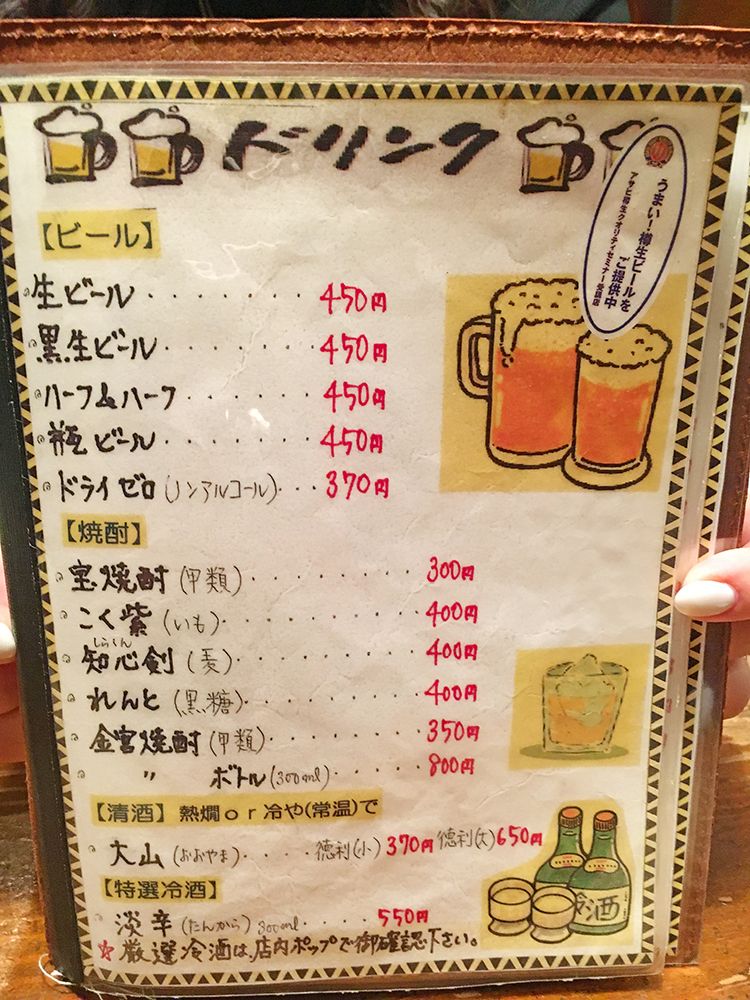 ドリンク
うまい!樽生ビールを
ご提供中
アサヒ樽生クオリティセミナー受講店
【ビール】
生ビール........450円
黒生ビール.......450円
ハーフ&ハーフ......450円
瓶ビール.......450円
ドライゼロ(ノンアルコール)...370円
【焼酎】
宝焼酎(甲類).........300円
こく紫(いも).........400円
しらしん
知心剣(麦).........400円
れんと(黒糖).........400円
金宮焼酎(甲類)........350円
〃 ボトル(300ml).....800円
【清酒】熱燗or冷や(常温)で
大山(おおやま).....徳利(小)370円 徳利(大)650円
【特選冷酒】
淡辛(たんから)300ml....550円
☆厳選冷酒は、店内ポップで御確認下さい。
酒